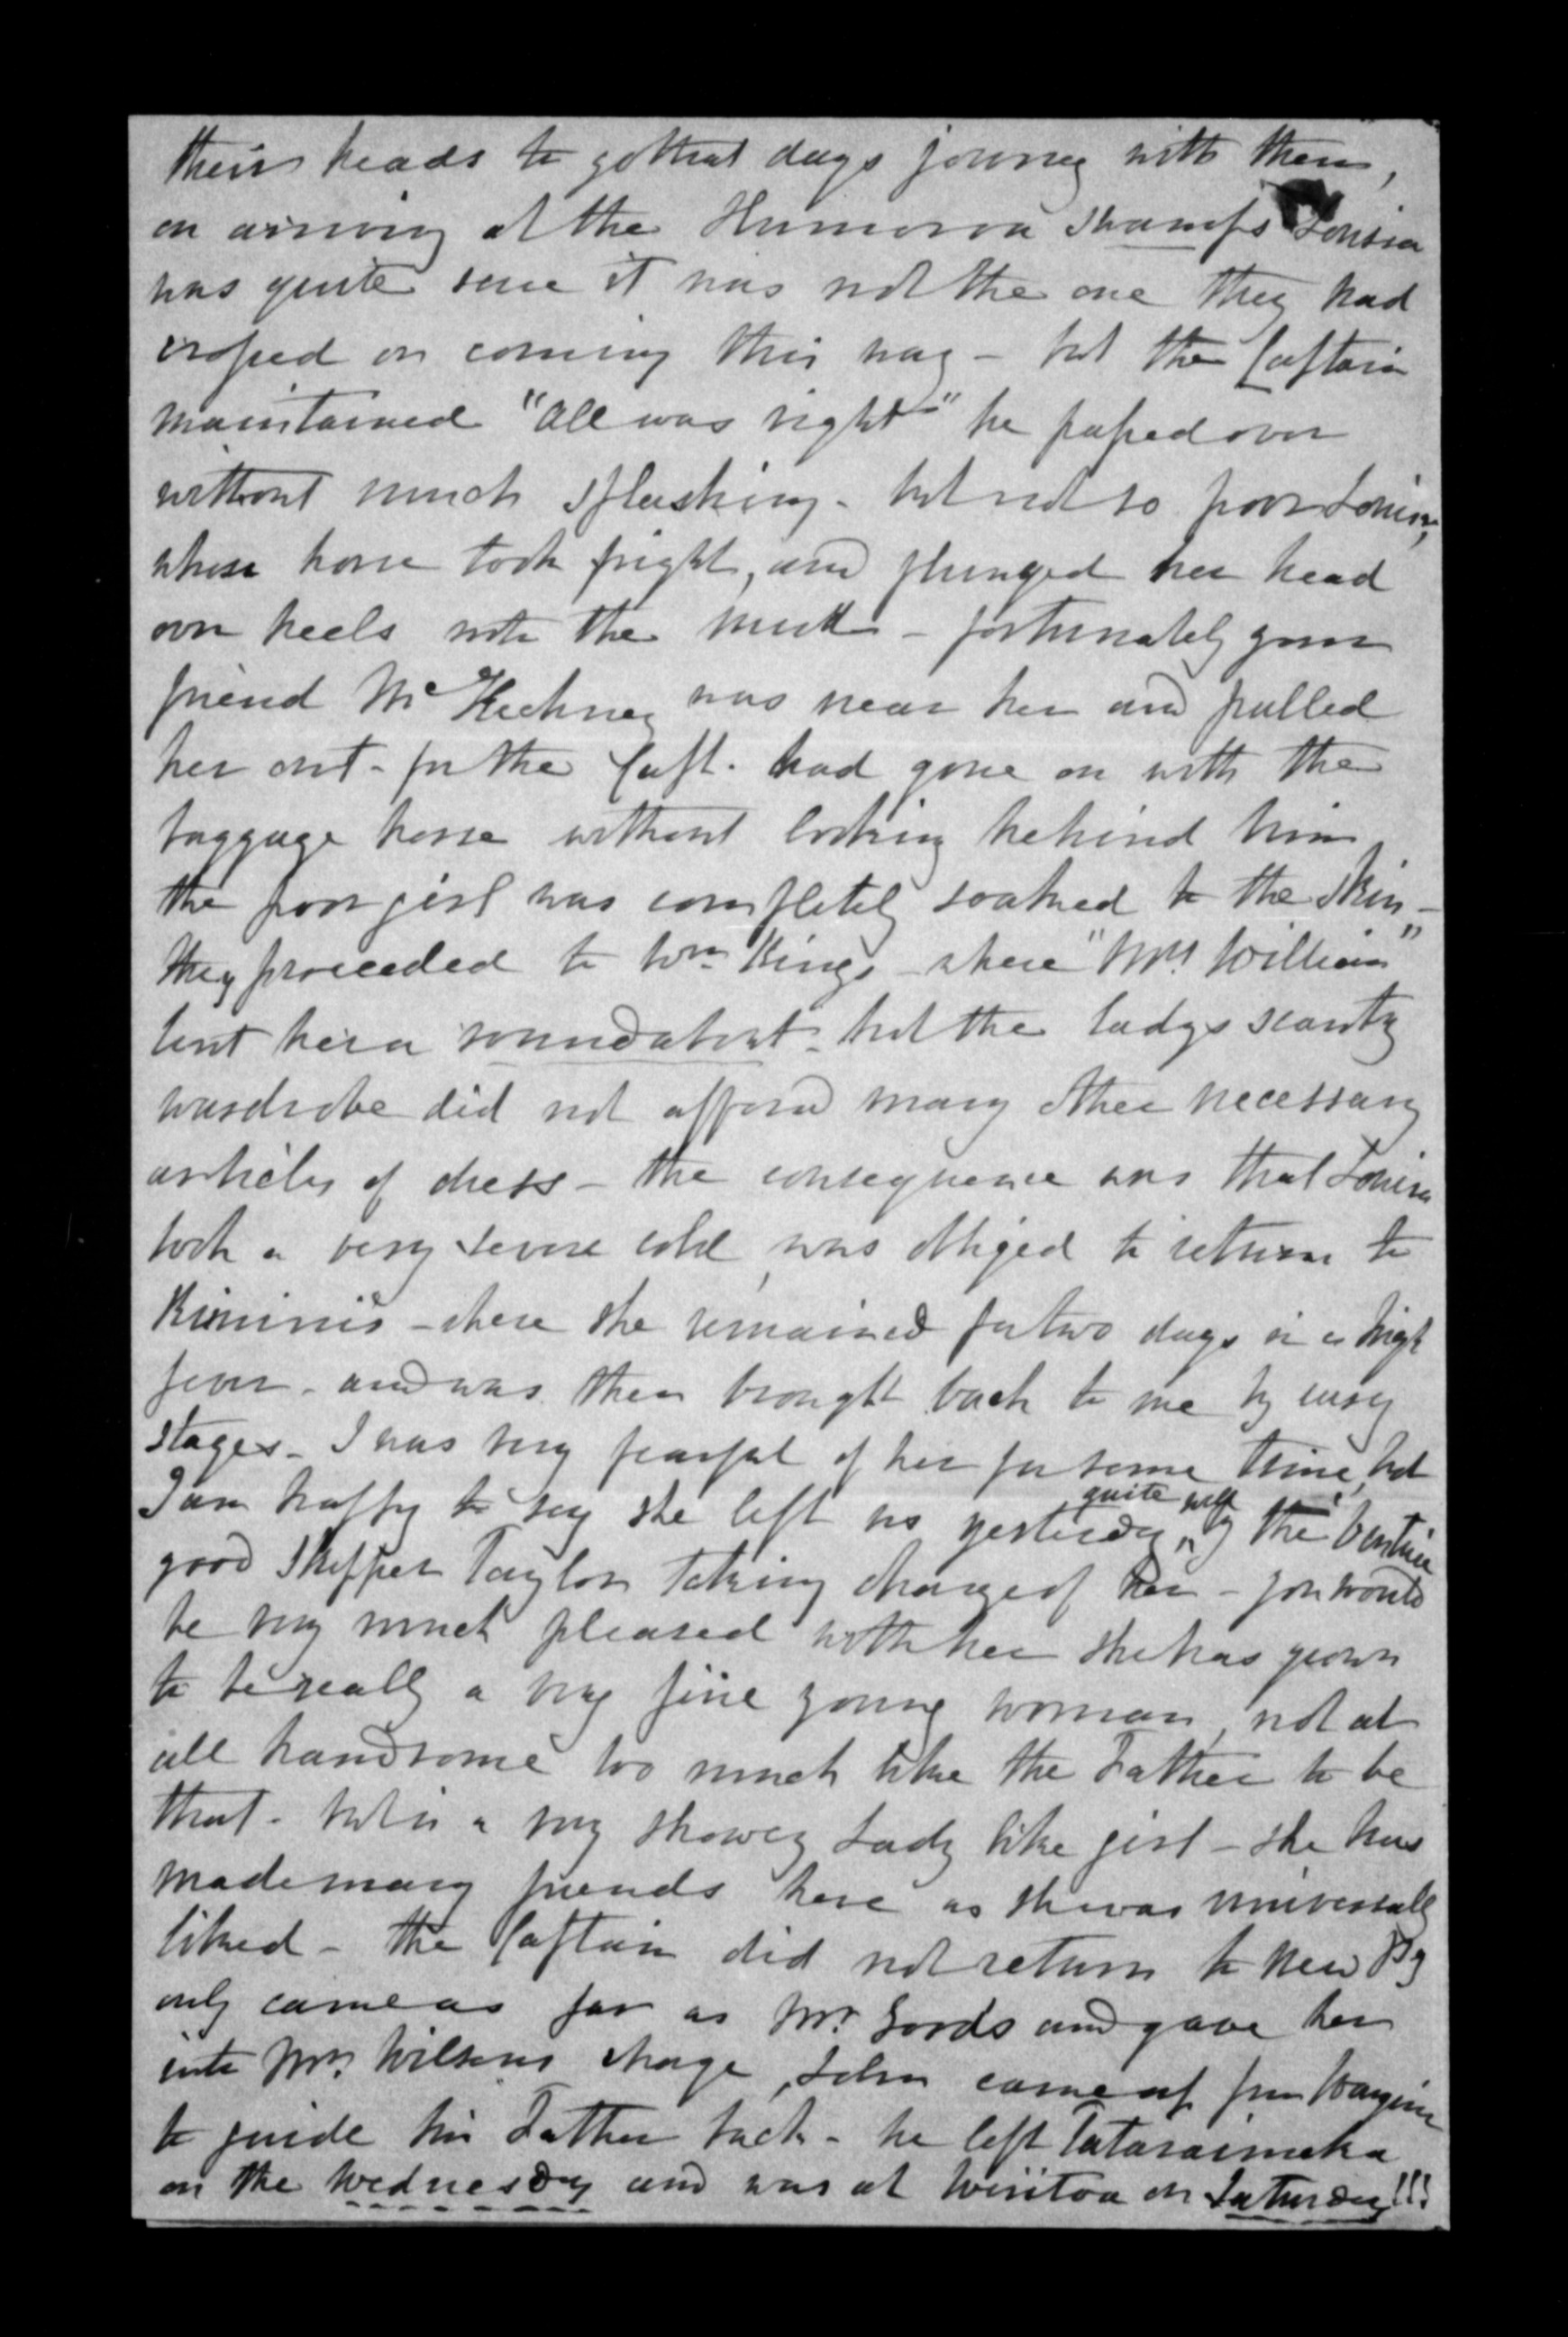 their heads to go that days journey with them,
on arriving at the Humoroa swamps Louisa
was quite sure it was not the one they had
crossed on coming this way - but the Captain
maintained "All was right" he passed over
without much splashing - but not so poor Louisa,
whose horse took fright, and plunged her head
over heels into the muck - fortunately your
friend Mc Kechney was near her and pulled
her out - for the Capt. had gone on with the
baggage horse without looking behind him
the poor girl was completely soaked to the skin -
they proceeded to Wm Kings where "Mrs William"
lent her a roundabout - but the ladys scanty
wardrobe did not afford many other necessary
articles of dress - the consequence was that Louisa
took a very severe cold, was obliged to return to
- where she remained for two days in a high
fever - and was then brought back to me by easy
stages - I was very fearful of her for some time, but
I am happy to say she left us yesterday quite well by the
good Skipper Taylor taking charge of her - you would
be very much pleased with her she has grown
to be really a very fine young woman, not at
all handsome too much like the Father to be
that - but is a very showey Lady like girl - she has
made many friends here as she was universally
liked - the Captain did not return to New Ply
only came as far as Mr. Gords and gave her
into Mrs. Wilsons charge, John came up from
to guide his Father back - he left Tataraimaka
on the Wednesday and was at Wiritoa on Saturday!!!